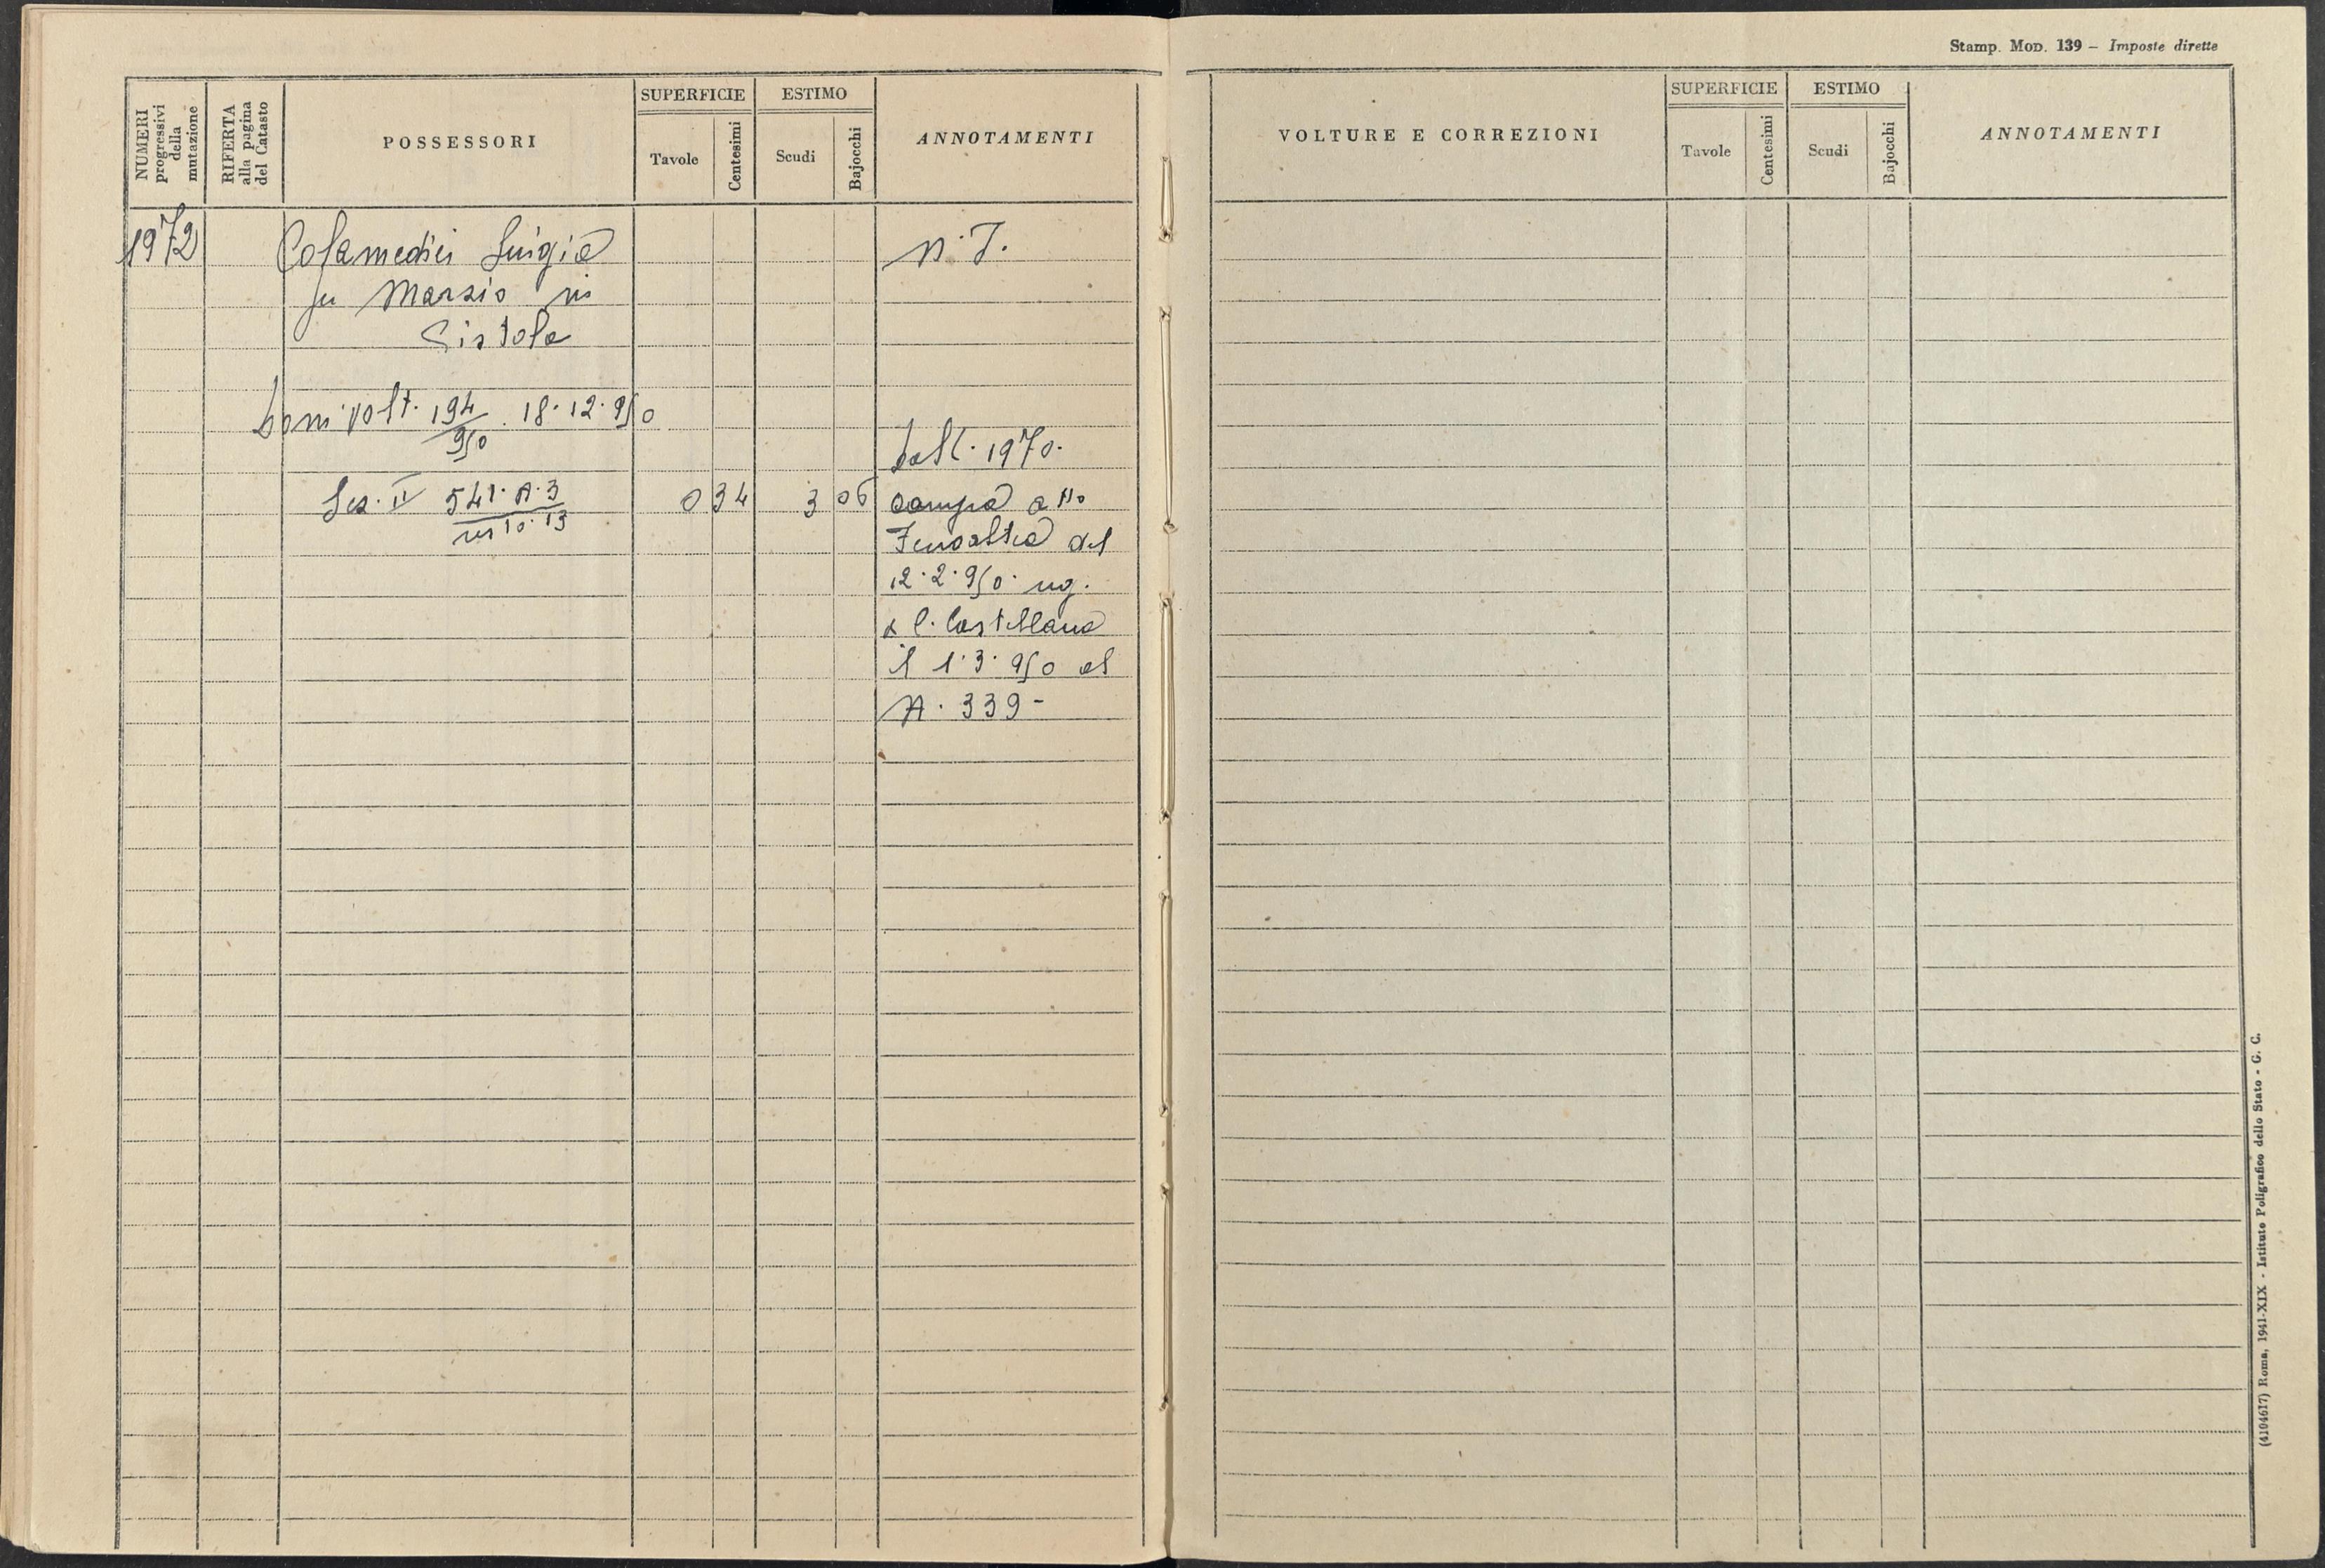 Stamp. Mod. 139 – Imposte dirette
NUMERI progressivi della mutazione
RIFERTA alla pagina del Catasto
POSSESSORI
SUPERFICIE
Tavole
Centesimi
ESTIMO
Scudi
Bajocchi
ANNOTAMENTI
VOLTURE E CORREZIONI
SUPERFICIE
Tavole
Centesimi
ESTIMO
Scudi
Bajocchi
ANNOTAMENTI
1972
Colamedici Luigia
fu Marzio in
Cistola
volt. 194/950. 18.12.950
Sez. II 541. A. 3
10. 13
0 34 3 06
n. T.
1970.
compra atto
del
12.2.950. reg.
a C. Castellana
il 1.3.950 al
N. 339-
(4104617) Roma, 1941-XIX - Istituto Poligrafico dello Stato - G. C.